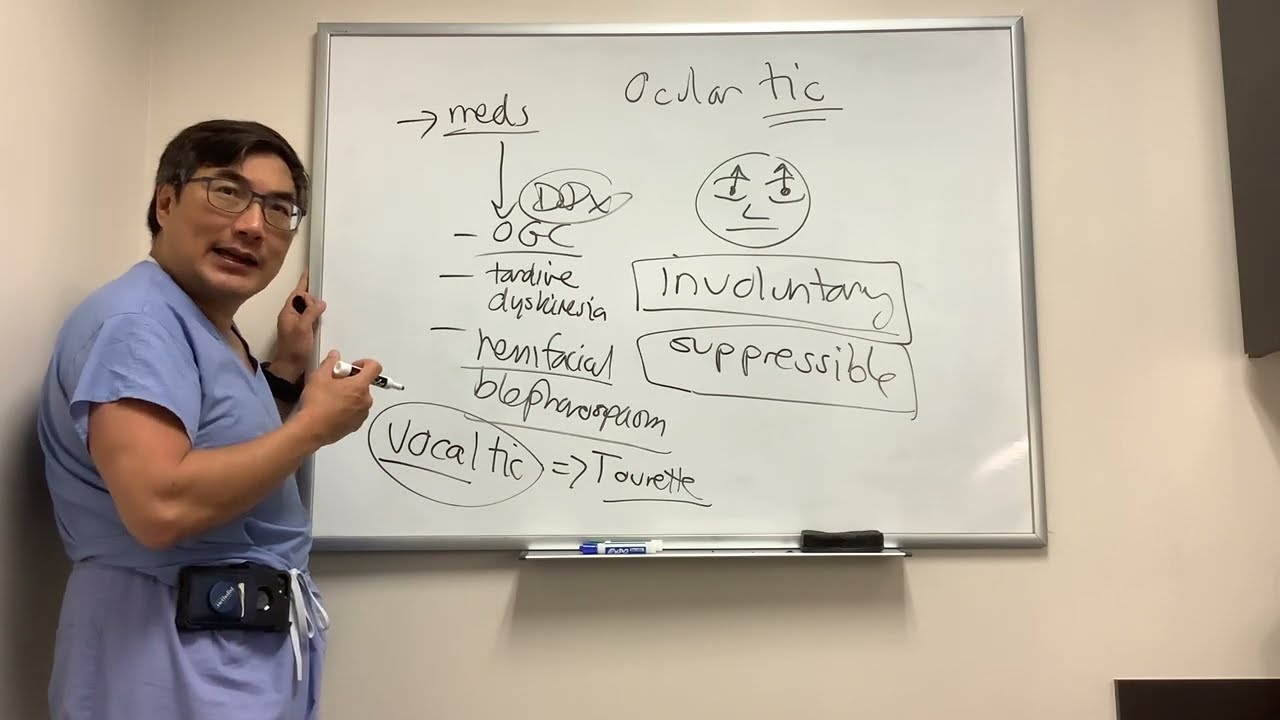 Ocular tic
→ meds
DDx
- OGC
- tardive
dyskinesia
- hemifacial
blepharospasm
involuntary
suppressible
vocal tic => Tourette